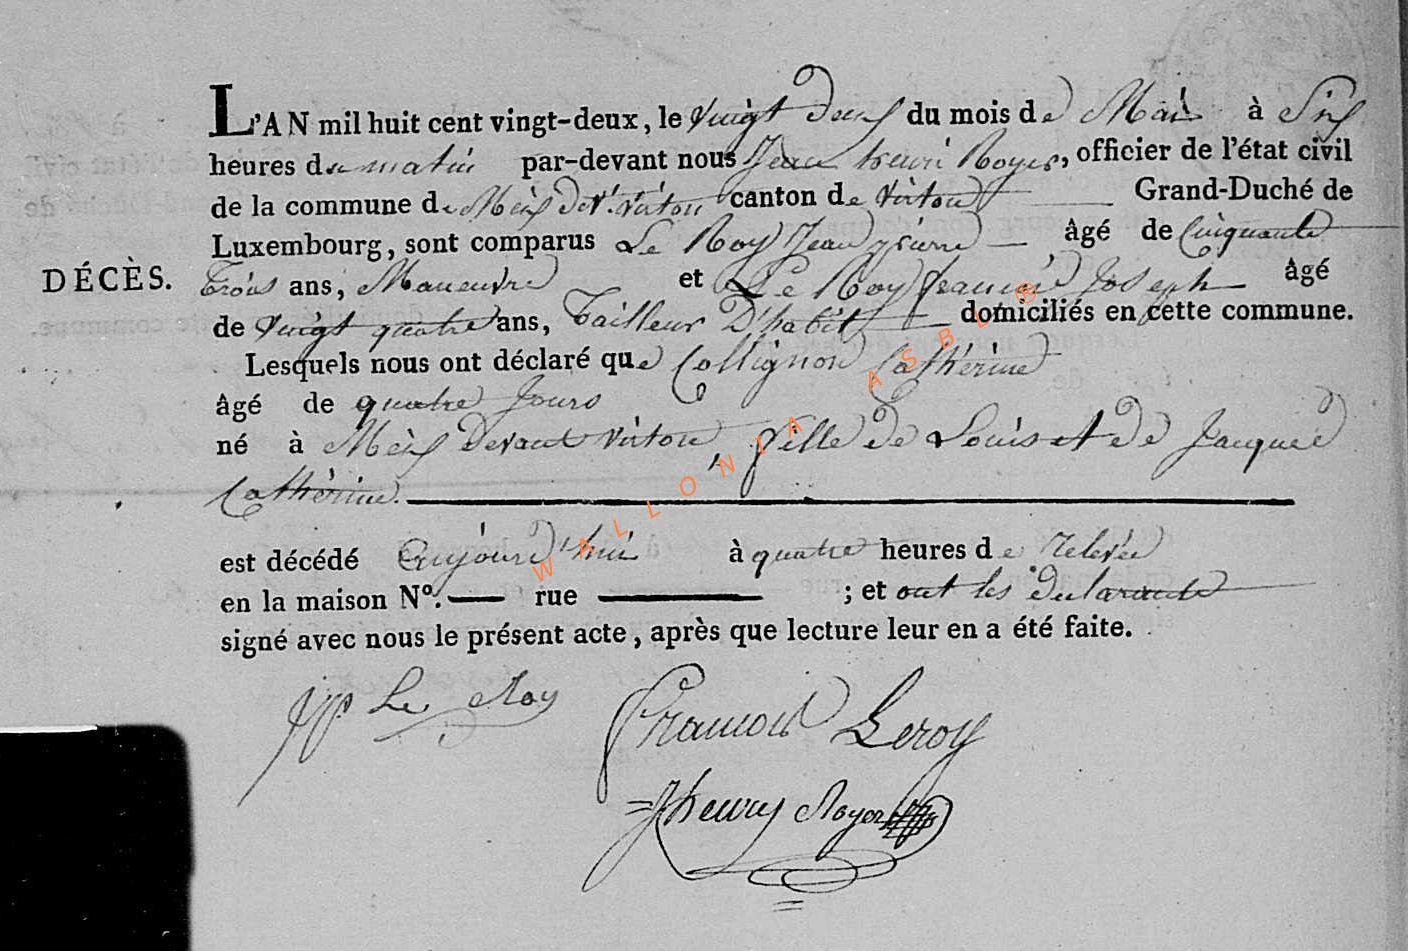 L'AN mil huit cent vingt-deux, le vingt deux du mois de Mai à Six
heures du matin par-devant nous Jean henri Royer, officier de l'état civil
de la commune de Meix Devt. virton canton de virton Grand-Duché de
Luxembourg, sont comparus Le Roy Jean pierre âgé de Cinquante
DÉCÈS. trois ans, Maneuvre et Le Roy francois Joseph âgé
de vingt quatre ans, Tailleur D'habit domiciliés en cette commune.
Lesquels nous ont déclaré que Collignon Cathérine
âgé de quatre Jours
né à Meix Devant virton, fille de Louis et de Jacques
Cathérine.
est décédé aujourd'hui à quatre heures de relevée
en la maison N°. rue ; et ont les déclarants
signé avec nous le présent acte, après que lecture leur en a été faite.
JP Le Roy Francois Leroy
JHenry Royer
WALLONIA ASBL ®